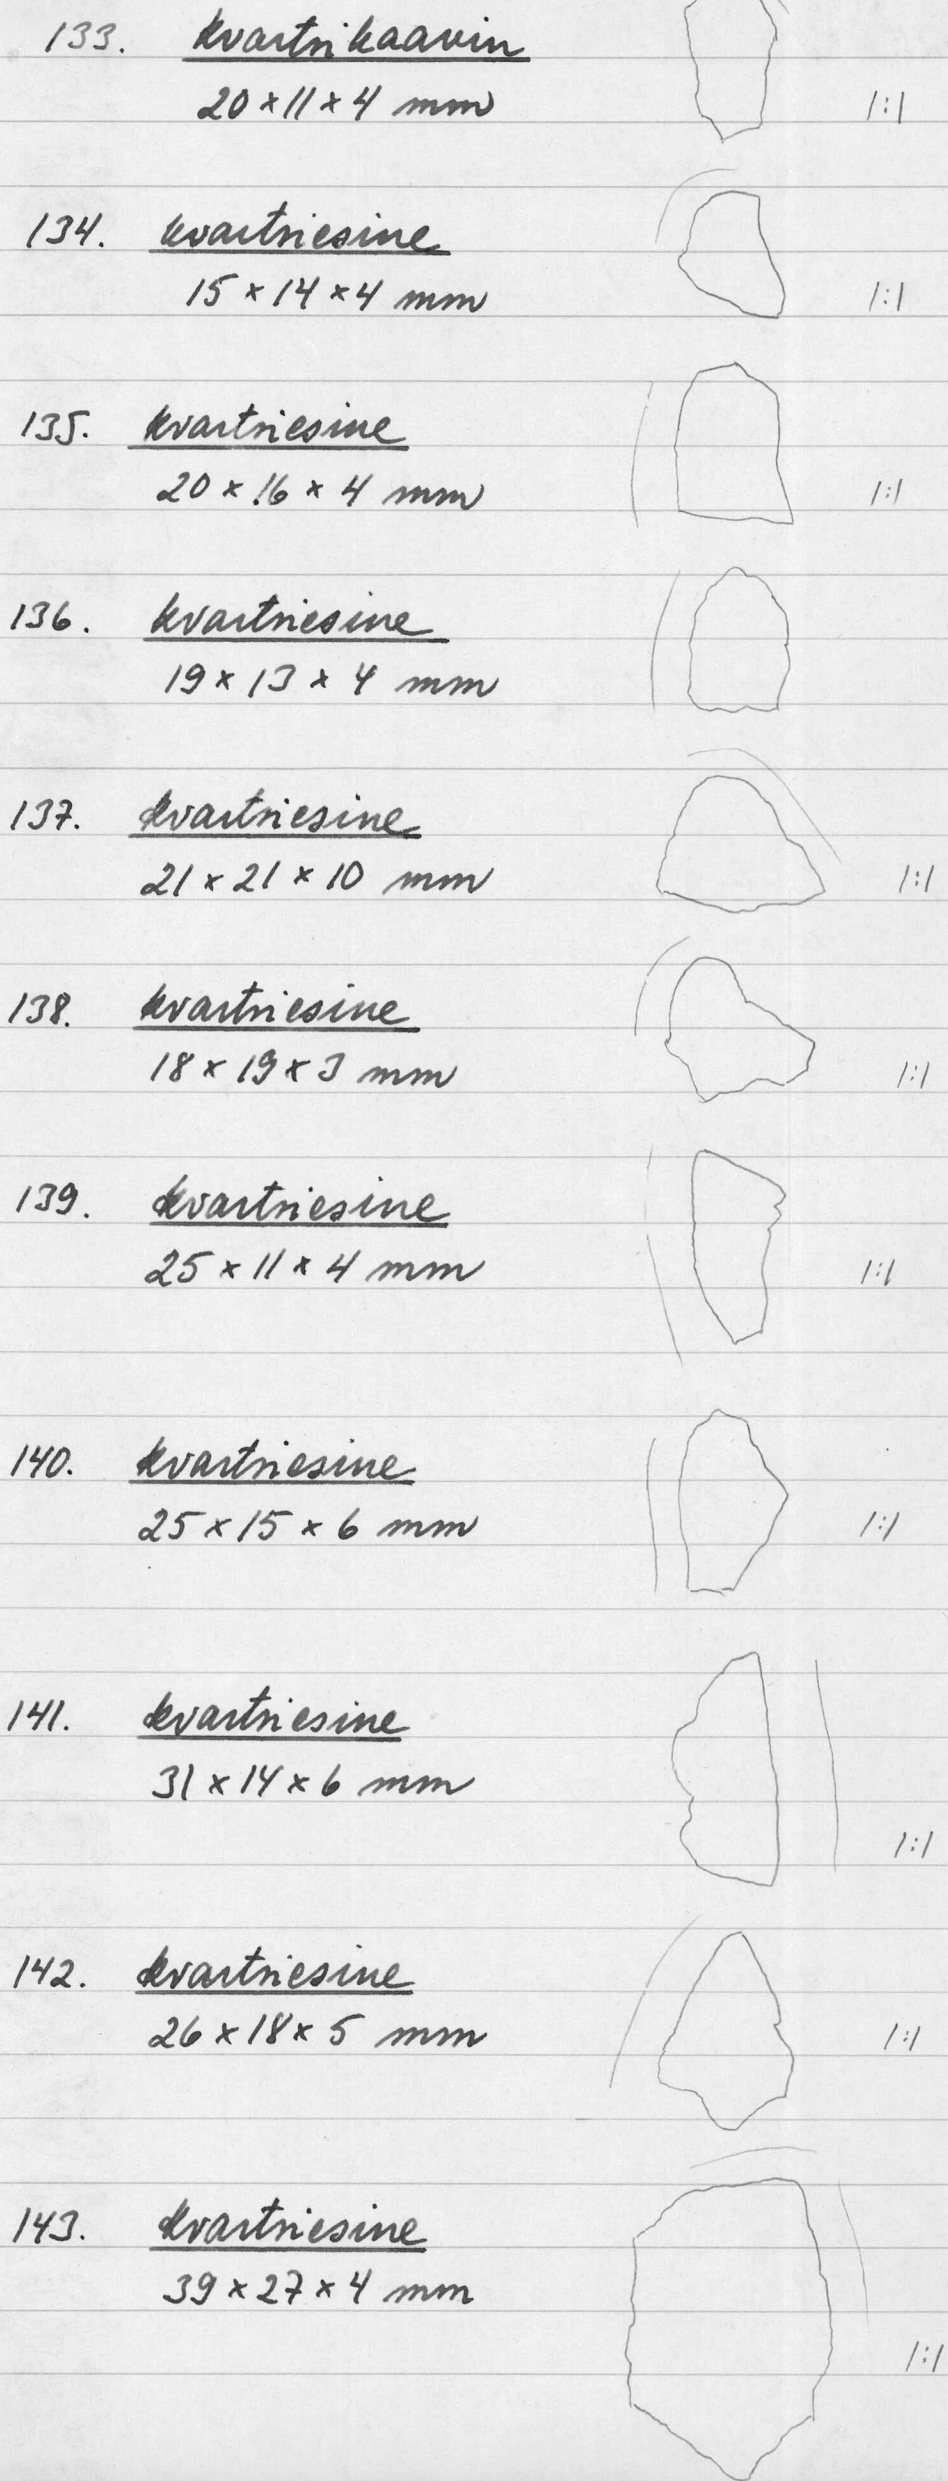 133. kvartsikaavin
20 × 11 × 4 mm 1:1
134. kvartsiesine
15 × 14 × 4 mm 1:1
135. kvartsiesine
20 × 16 × 4 mm 1:1
136. kvartsiesine
19 × 13 × 4 mm
137. kvartsiesine
21 × 21 × 10 mm 1:1
138. kvartsiesine
18 × 19 × 3 mm 1:1
139. kvartsiesine
25 × 11 × 4 mm 1:1
140. kvartsiesine
25 × 15 × 6 mm 1:1
141. kvartsiesine
31 × 14 × 6 mm
1:1
142. kvartsiesine
26 × 18 × 5 mm 1:1
143. kvartsiesine
39 × 27 × 4 mm
1:1